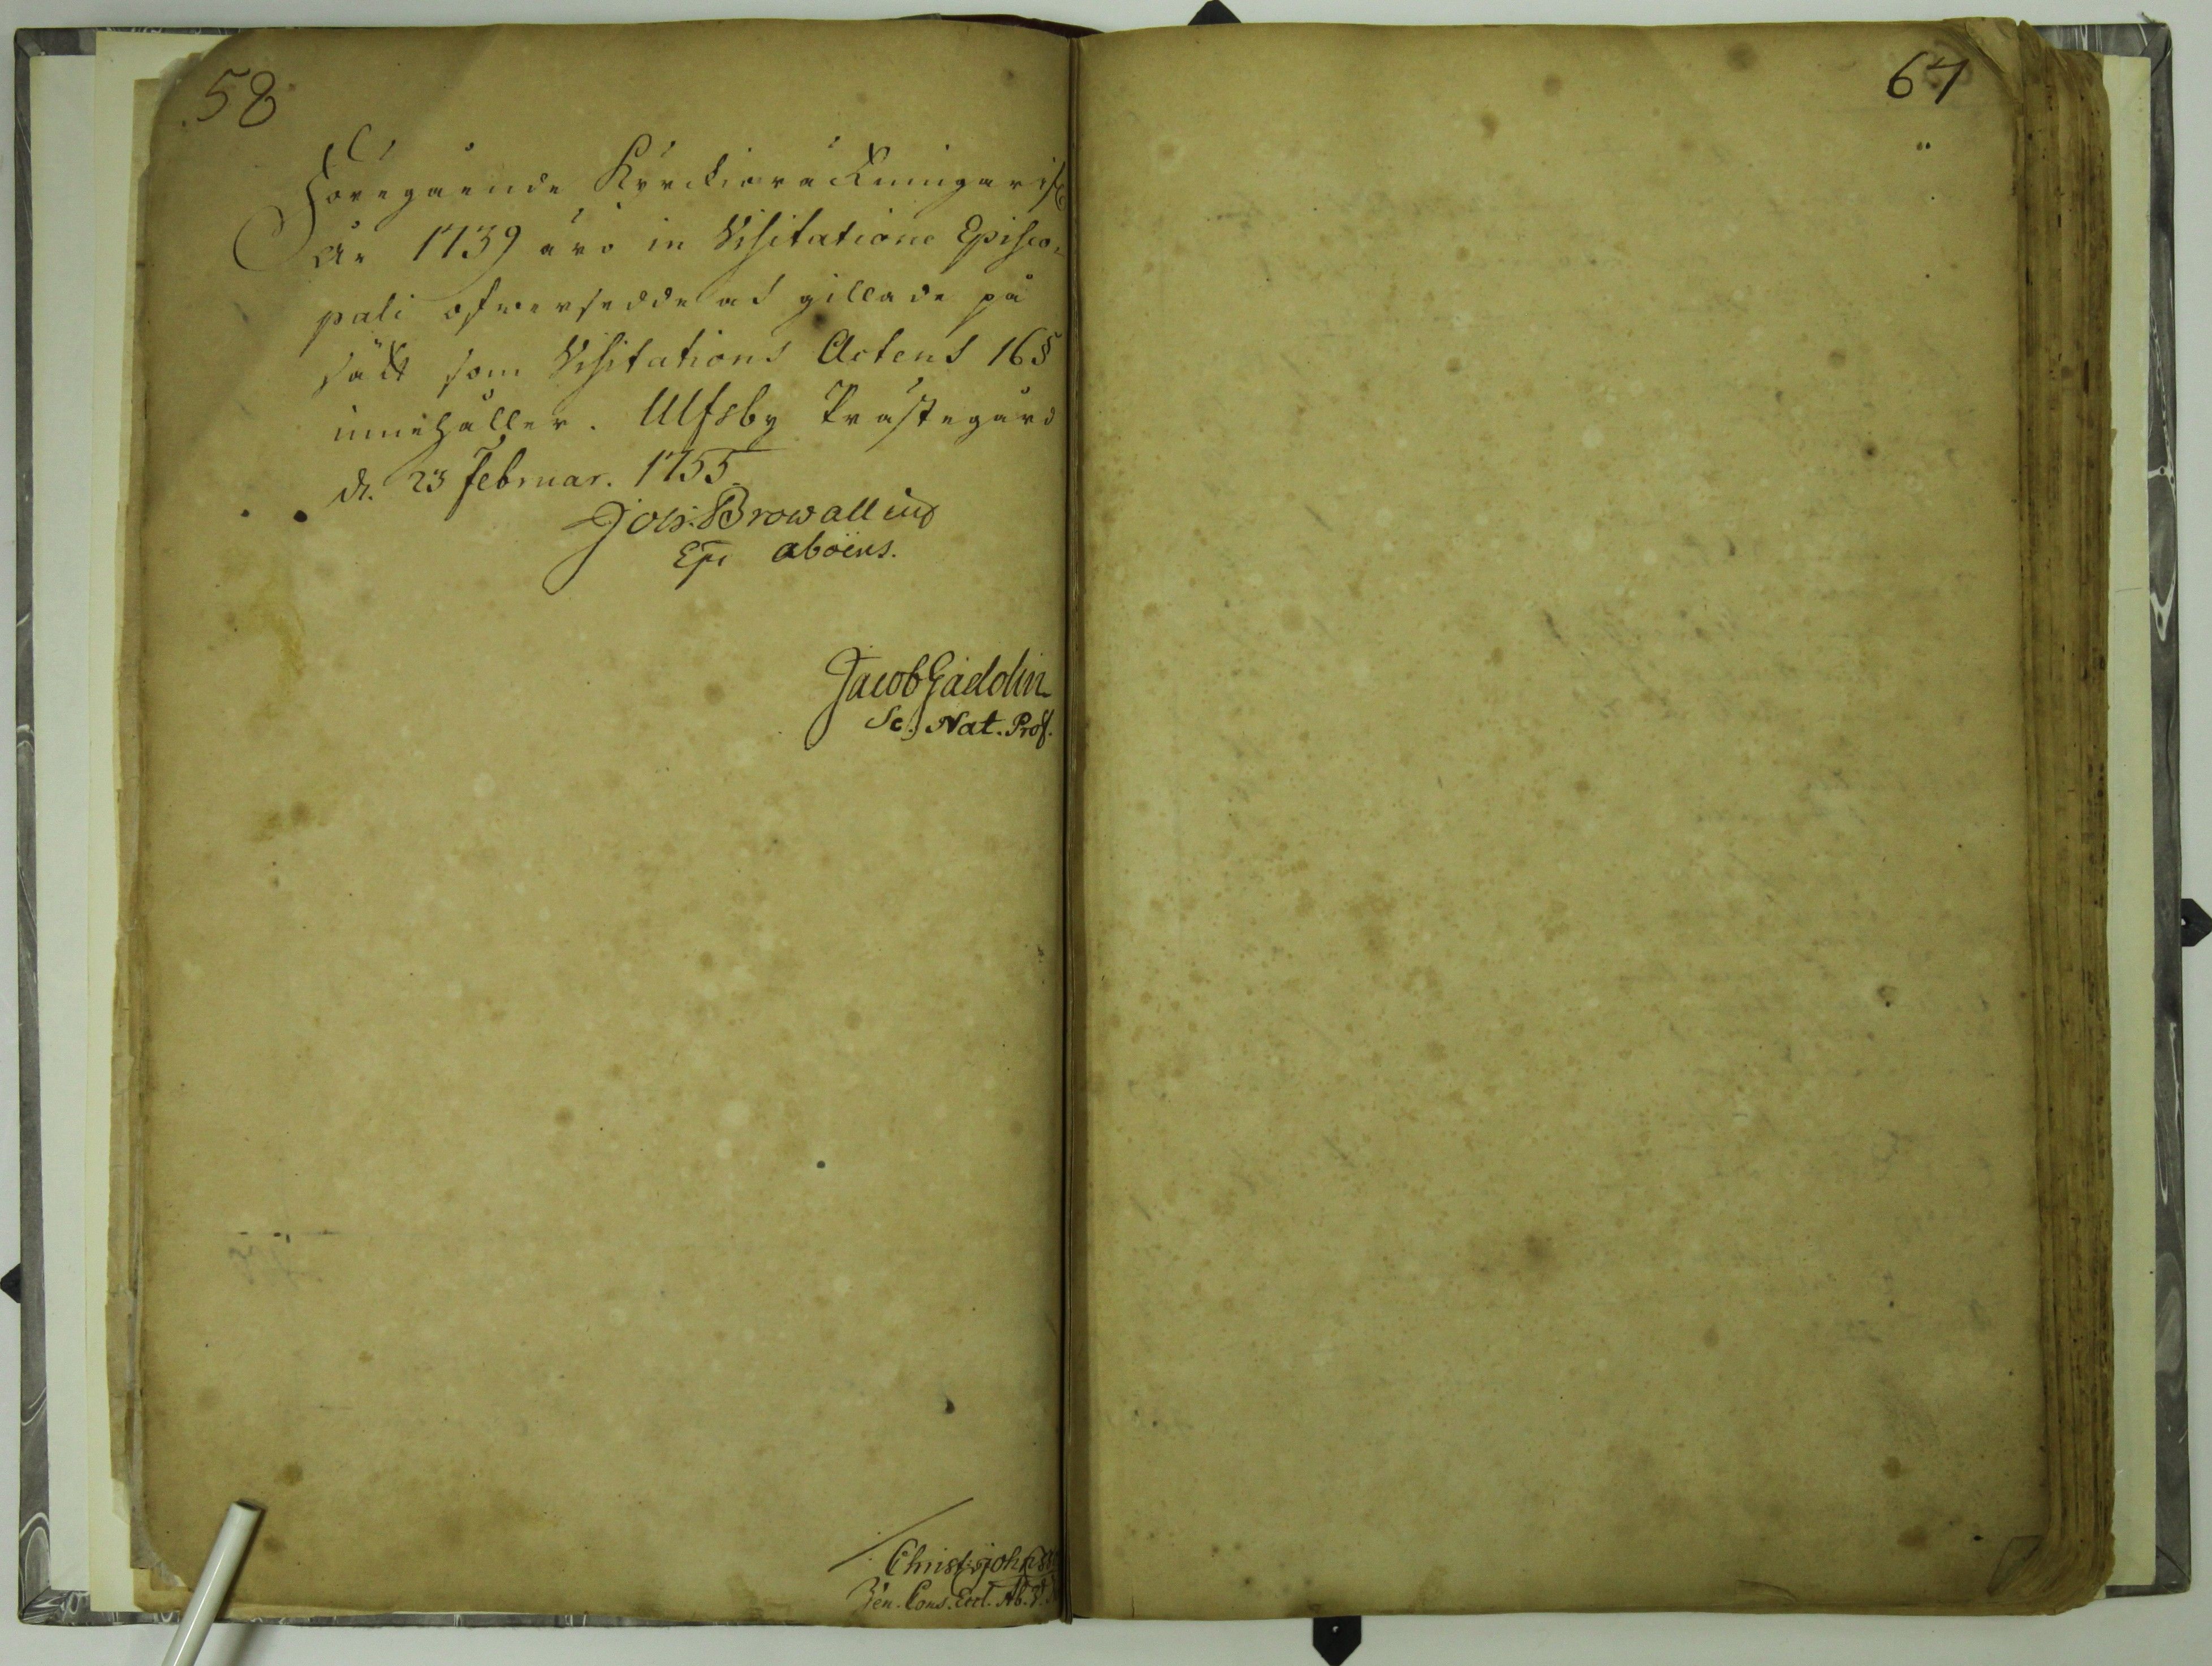 58
Föregående Kyrckioräkningar ifr
År 1739 äro in Visitatione Episco-
pali öfwersedde ad gillade på
sätt som Visitations Actens 16 §
innehåller. Ulfsby Prästegård
d. 23 Februar. 1755.
Joh. Browallius
Epi Aboëns.
Jacob Gadolin
Sc. Nat. Prof.
Christ: Joh:
Ven. Cons. Eccl. Ab.
67